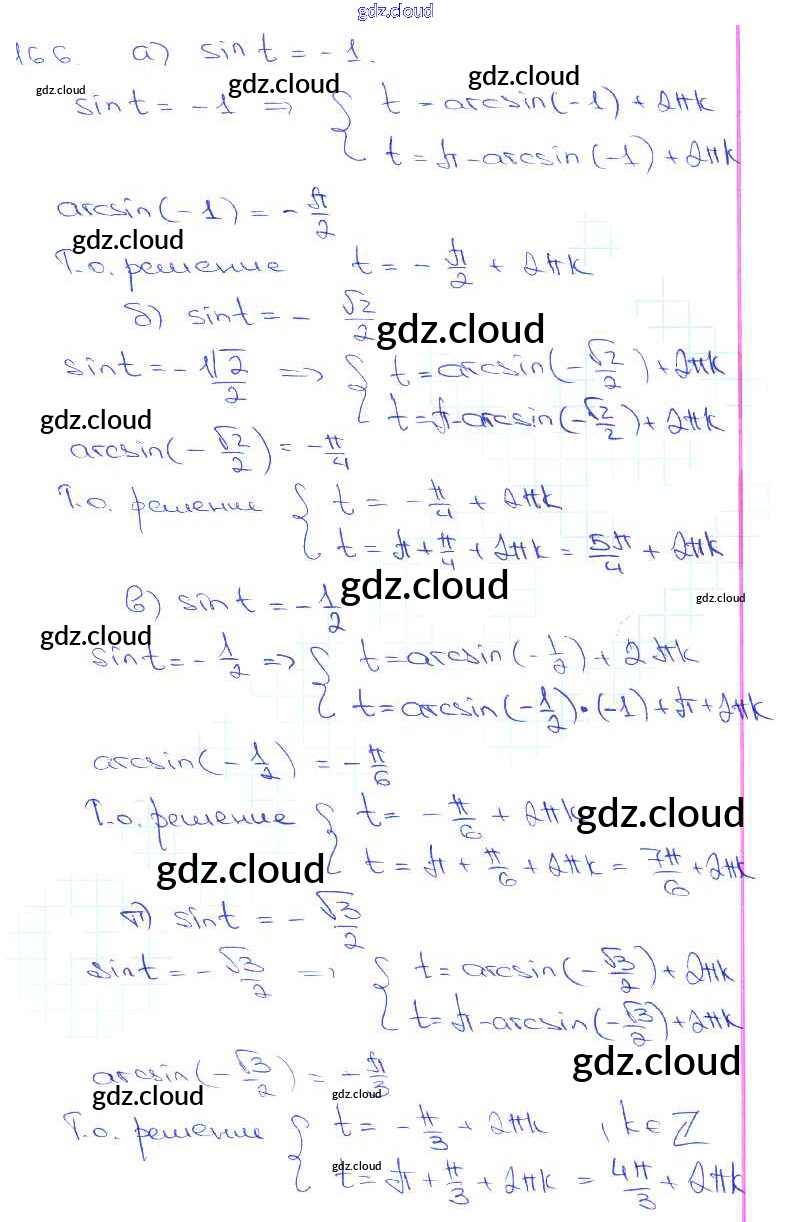 gdz.cloud
166 а) sin t = -1.
gdz.cloud gdz.cloud gdz.cloud
sin t = -1 => { t = arcsin(-1) + 2πk
t = π - arcsin(-1) + 2πk
arcsin(-1) = -π/2
gdz.cloud
Т.о. решение t = -π/2 + 2πk
б) sin t = -√2/2
gdz.cloud
sin t = -√2/2 => { t = arcsin(-√2/2) + 2πk
t = π - arcsin(-√2/2) + 2πk
gdz.cloud
arcsin(-√2/2) = -π/4
Т.о. решение { t = -π/4 + 2πk
t = π + π/4 + 2πk = 5π/4 + 2πk
gdz.cloud gdz.cloud
в) sin t = -1/2
gdz.cloud
sin t = -1/2 => { t = arcsin(-1/2) + 2πk
t = arcsin(-1/2)·(-1) + π + 2πk
arcsin(-1/2) = -π/6
Т.о. решение { t = -π/6 + 2πk
gdz.cloud
t = π + π/6 + 2πk = 7π/6 + 2πk
gdz.cloud
г) sin t = -√3/2
sin t = -√3/2 => { t = arcsin(-√3/2) + 2πk
t = π - arcsin(-√3/2) + 2πk
gdz.cloud
arcsin(-√3/2) = -π/3
gdz.cloud gdz.cloud
Т.о. решение { t = -π/3 + 2πk , k∈Z
gdz.cloud
t = π + π/3 + 2πk = 4π/3 + 2πk